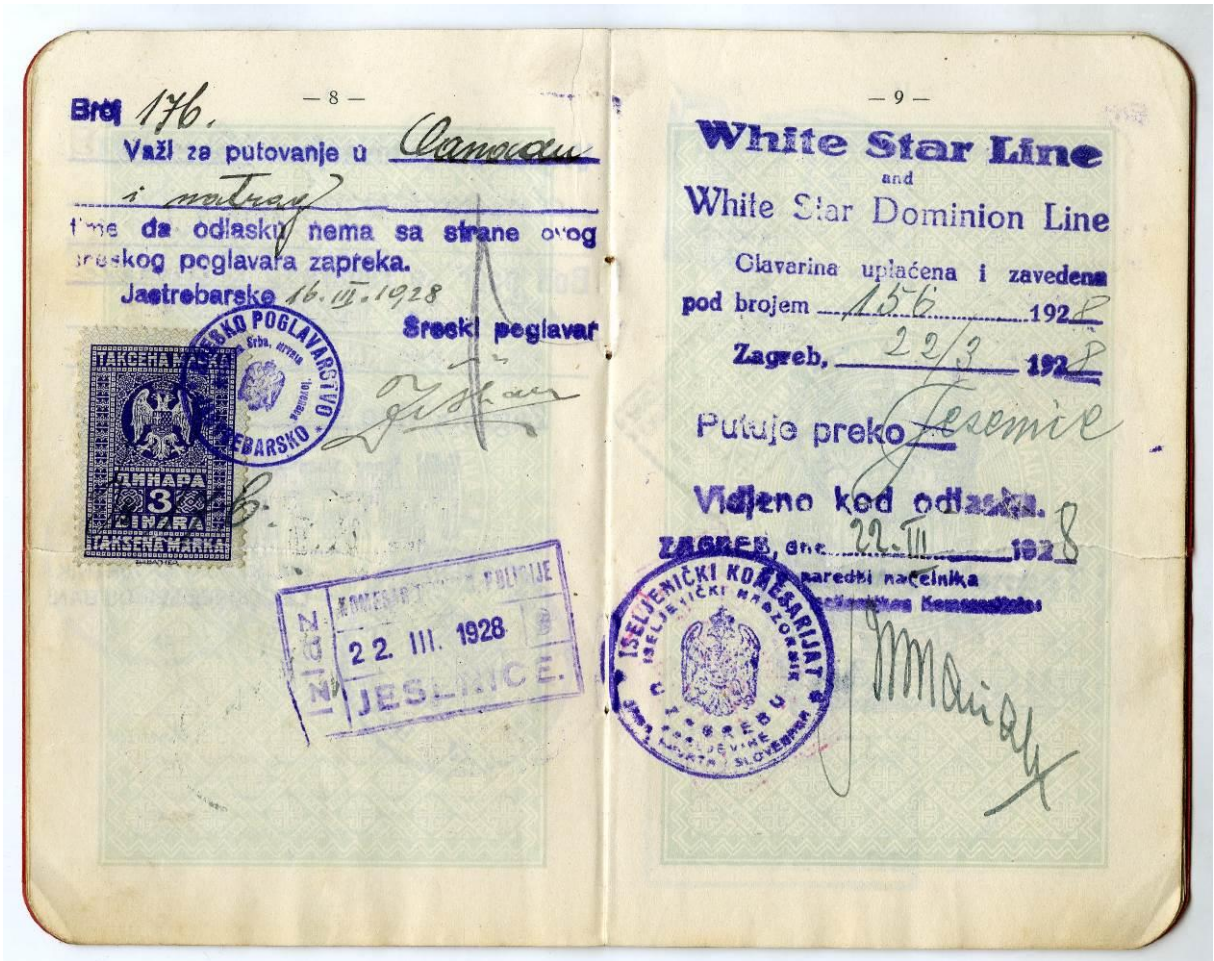 — 8 —
Broj 176.
Važi za putovanje u Canadu
i natrag
time da odlasku nema sa strane ovog
sreskog poglavara zapreka.
Jastrebarsko 16. III. 1928
Sreski poglavar
SRESKO POGLAVARSTVO
JASTREBARSKO
ТАКСЕНА МАРКА
ДИНАРА
3
DINARA
TAKSENA MARKA
KOMESAR POLICIJE
22. III. 1928
JESENICE.
— 9 —
White Star Line
and
White Star Dominion Line
Glavarina uplaćena i zavedena
pod brojem 156 1928
Zagreb, 22/3 1928
Putuje preko Jesenice
Vidjeno kod odlaska.
ZAGREB, dne 22. III 1928
naredbi načelnika
ISELJENIČKI KOMESARIJAT
U ZAGREBU
KRALJEVINE
SRBA, HRVATA I SLOVENACA